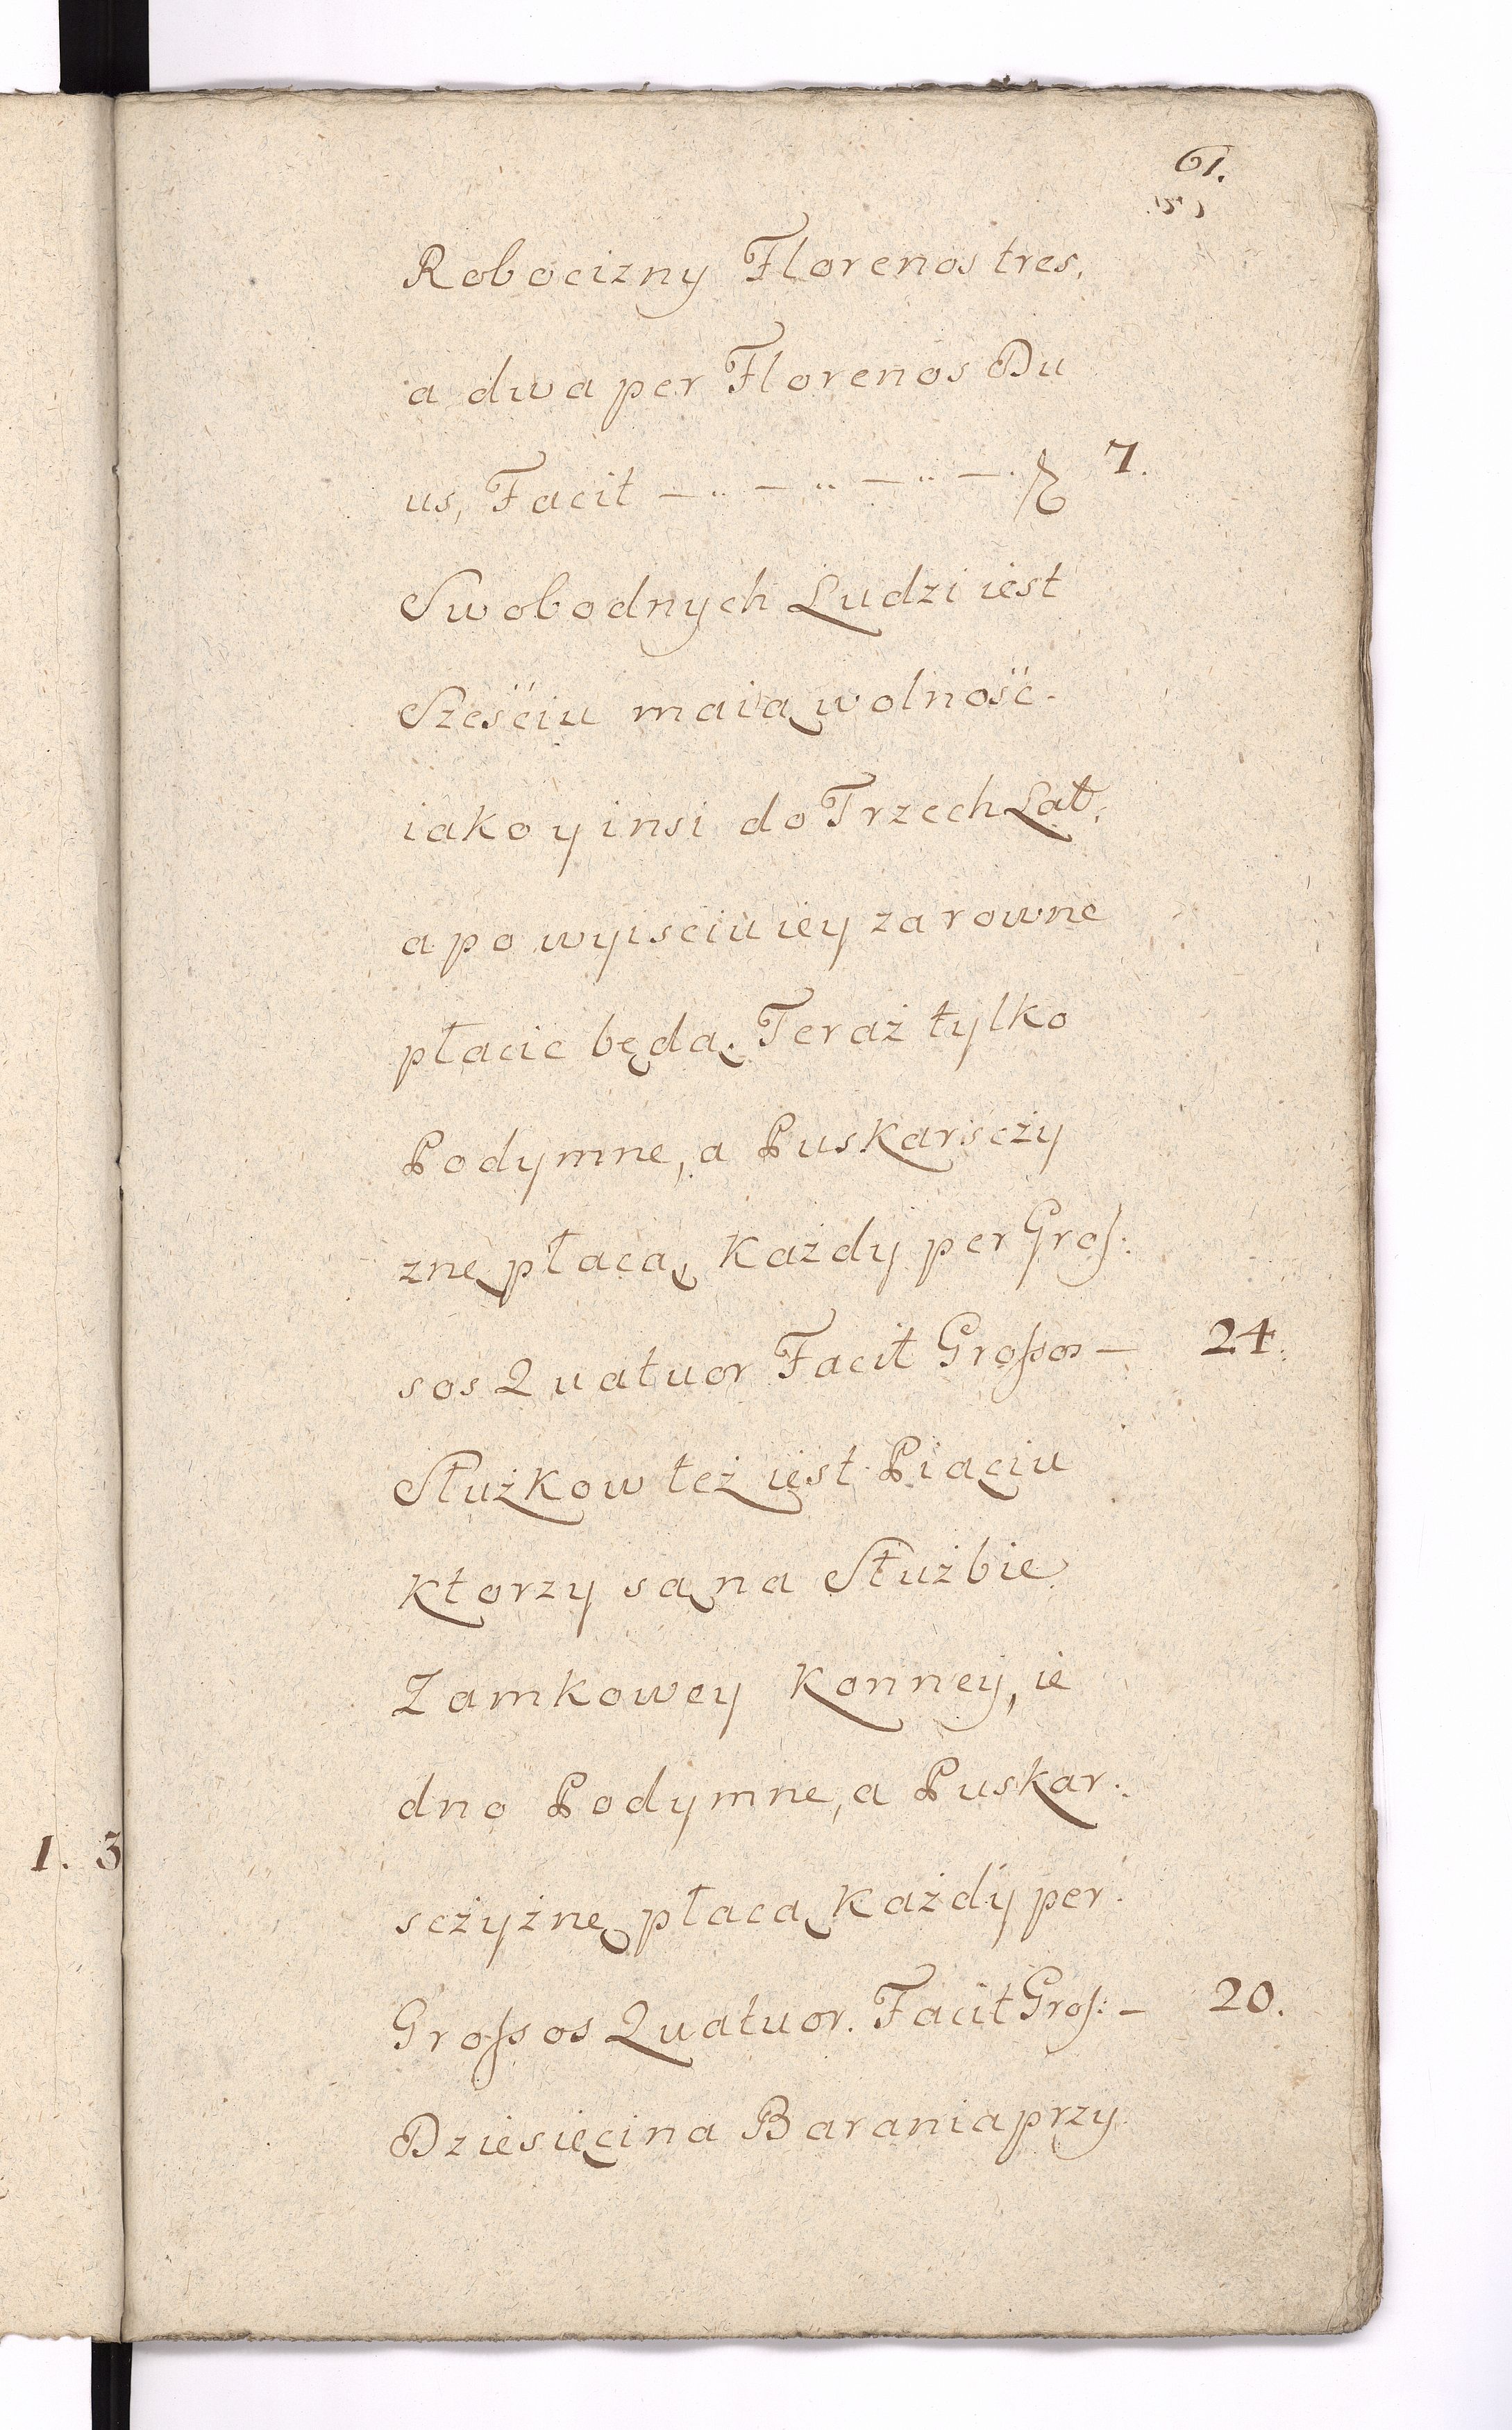 61.
Robocizny Florenos tres,
a dwa per Florenos Du
us, Facit — .. — .. — .. — . 7.
Swobodnych Ludzi iest
Sześciu maią wolność.
iako y insi do Trzech Lat,
a po wyisciu iey za rowne
płacic będą. Teraż tylko
Podymne, a Puskarsczy
znę płacą, Każdy per Gros:
sos Quatuor Facit Grossos — 24.
Służkow też iest Piąciu
Ktorzy są na Służbie
Zamkowey Konney, ie
dno Podymne, a Puskar.
sczyżnę płacą Każdy per.
Grossos Quatuor. Facit Gros: — 20.
Dziesięcina Barania przy
1. 3